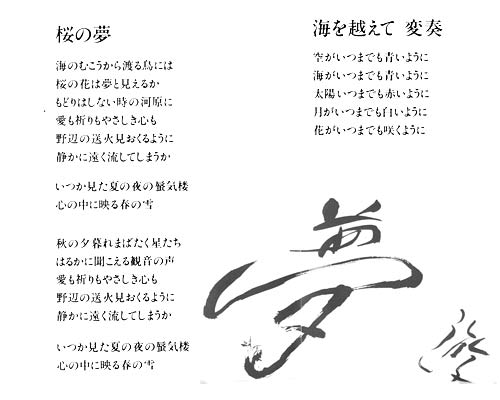 桜の夢
海のむこうから渡る鳥には
桜の花は夢と見えるか
もどりはしない時の河原に
愛も祈りもやさしき心も
野辺の送火見おくるように
静かに遠く流してしまうか
いつか見た夏の夜の蜃気楼
心の中に映る春の雪
秋の夕暮れまばたく星たち
はるかに聞こえる観音の声
愛も祈りもやさしき心も
野辺の送火見おくるように
静かに遠く流してしまうか
いつか見た夏の夜の蜃気楼
心の中に映る春の雪
海を越えて 変奏
空がいつまでも青いように
海がいつまでも青いように
太陽いつまでも赤いように
月がいつまでも白いように
花がいつまでも咲くように
夢